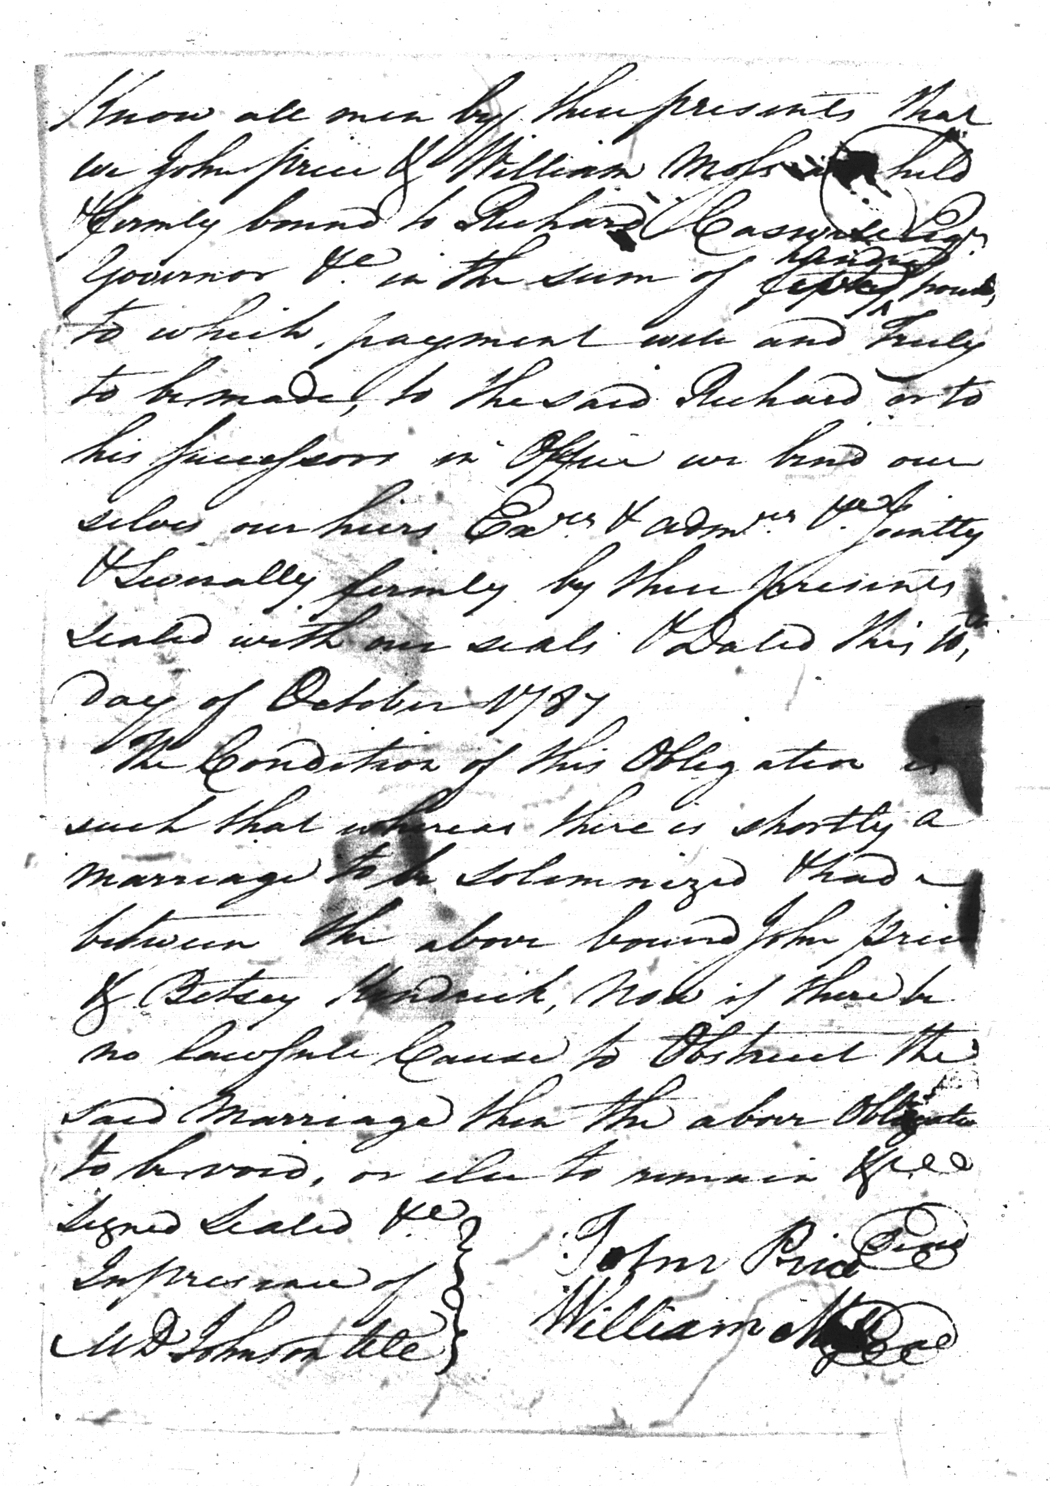 Know all men by these presents that
we John price & William Moss are held
& firmly bound to Richard Caswell Esqr
Governor &c. in the sum of hundred pounds
to which, payment well and Truly
to be made, to the said Richard or to
his successors in Office we bind our
selves our heirs Exrs & admrs &c Jointly
& Severally firmly by these presents
sealed with our seals & Dated this 10th,
day of October 1787
The Condition of this Obligation is
such that whereas there is shortly a
marriage to be solemnized & had
between the above bound John price
& Betsey Kendrick, Now if there be
no lawfull Cause to Obstruct the
said Marriage then the above Obligation
to be void, or else to remain &c
signed sealed &c
In presence of
M D Johnson
John Price Seal
William Seal